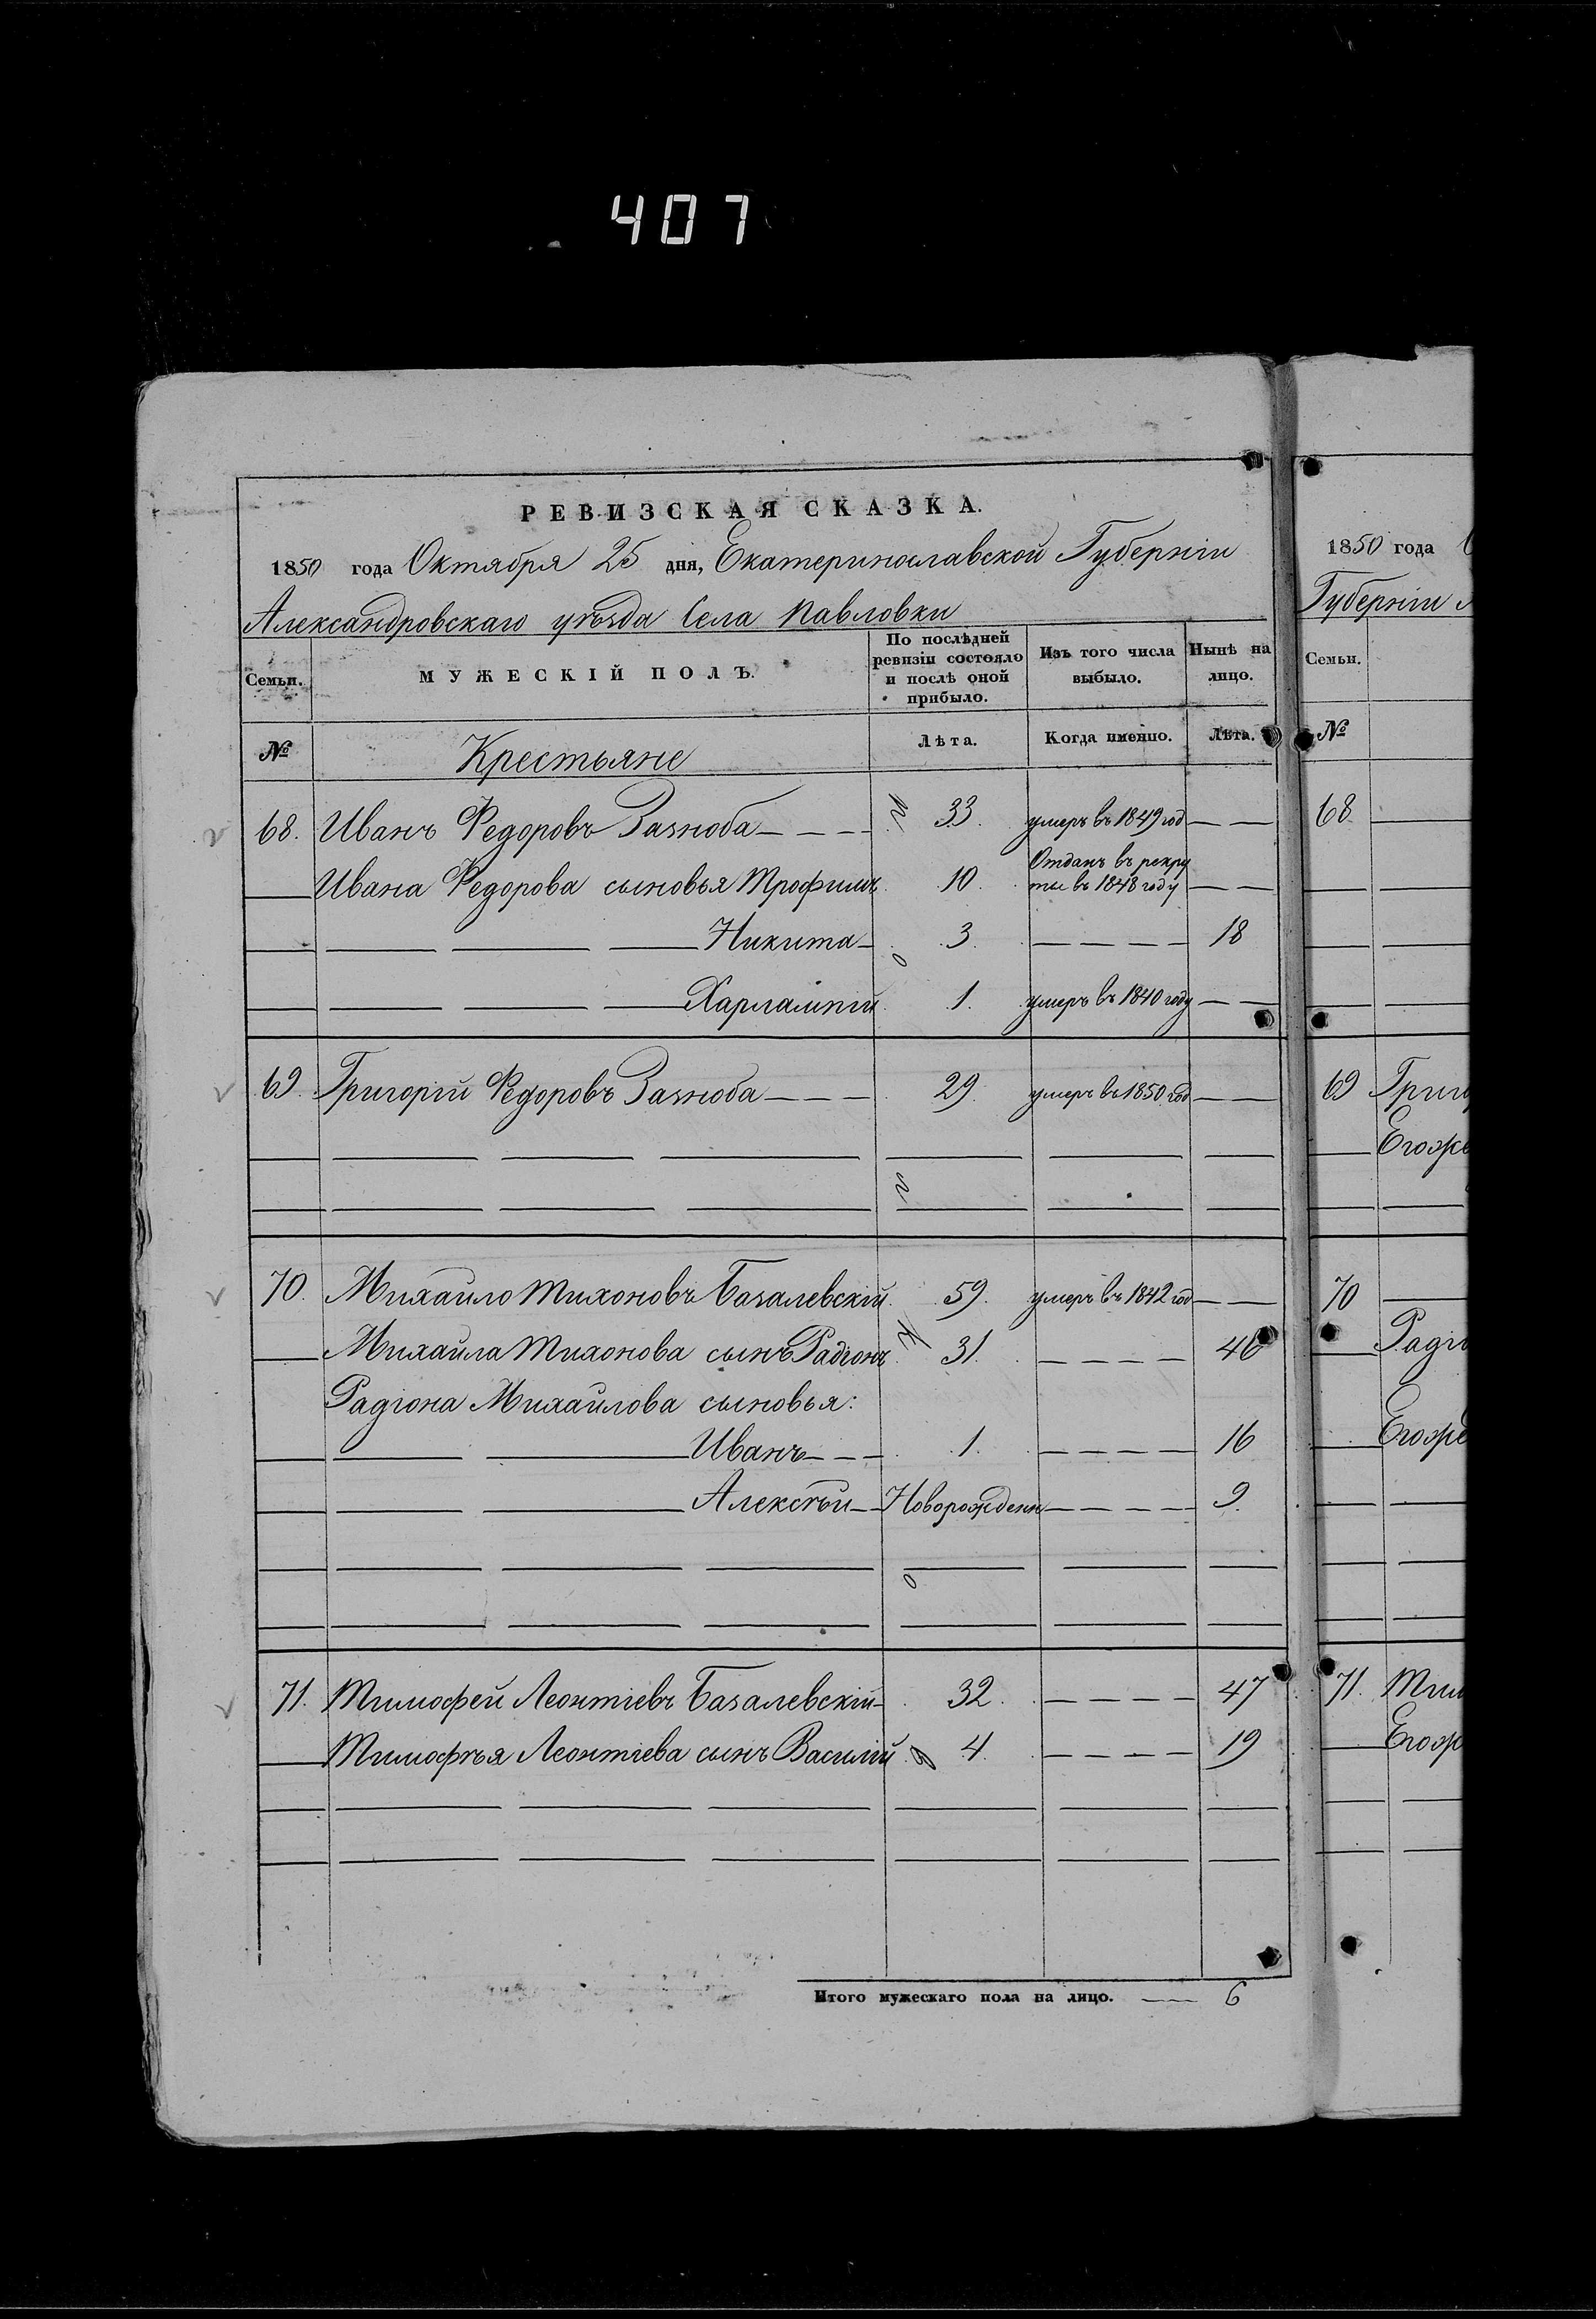 407
РЕВИЗСКАЯ СКАЗКА.
1850 года Октября 25 дня, Екатеринославской Губерніи
Александровскаго уѣзда Села Павловки
Семьи. МУЖЕСКІЙ ПОЛЪ. По послѣдней ревизіи состояло и послѣ оной прибыло. Изъ того числа выбыло. Нынѣ на лицо.
№ Крестьяне Лѣта. Когда именно. Лѣта.
68. Иванъ Федоровъ Зазноба 33. умеръ въ 1849 год
Ивана Федорова сыновья Трофимъ 10. Отданъ въ рекруты въ 1848 году
Никита 3. 18
Харлампій 1. умеръ въ 1840 году
69. Григорій Федоровъ Зазноба 29. умеръ въ 1850 год
70. Михайло Тихоновъ Базалевскій 59. умеръ въ 1842 год
Михайла Тихонова сынъ Радіонъ 31. 46
Радіона Михайлова сыновья:
Иванъ 1. 16
Алексѣй Новорожден 9.
71. Тимофей Леонтіевъ Базалевскій 32. 47
Тимофѣя Леонтіева сынъ Василій 4. 19
Итого мужескаго пола на лицо. 6
1850 года
Губерніи
Семьи.
№
68
69 Григо
Егоже
70
Радіо
Егоже
71. Тим
Егож